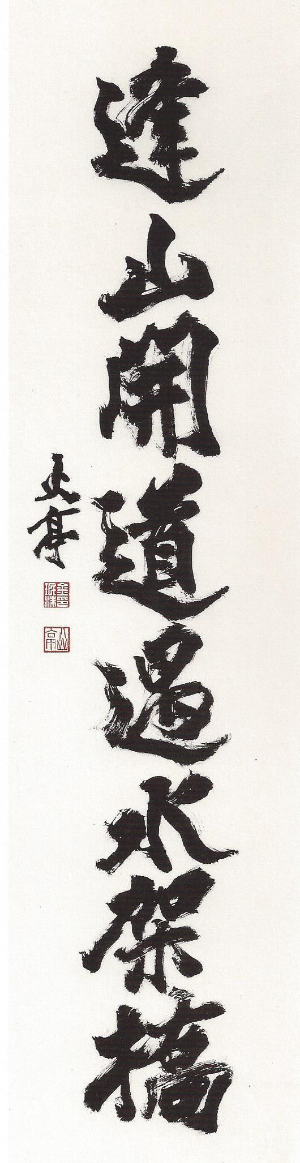 逢山開道遇水架橋